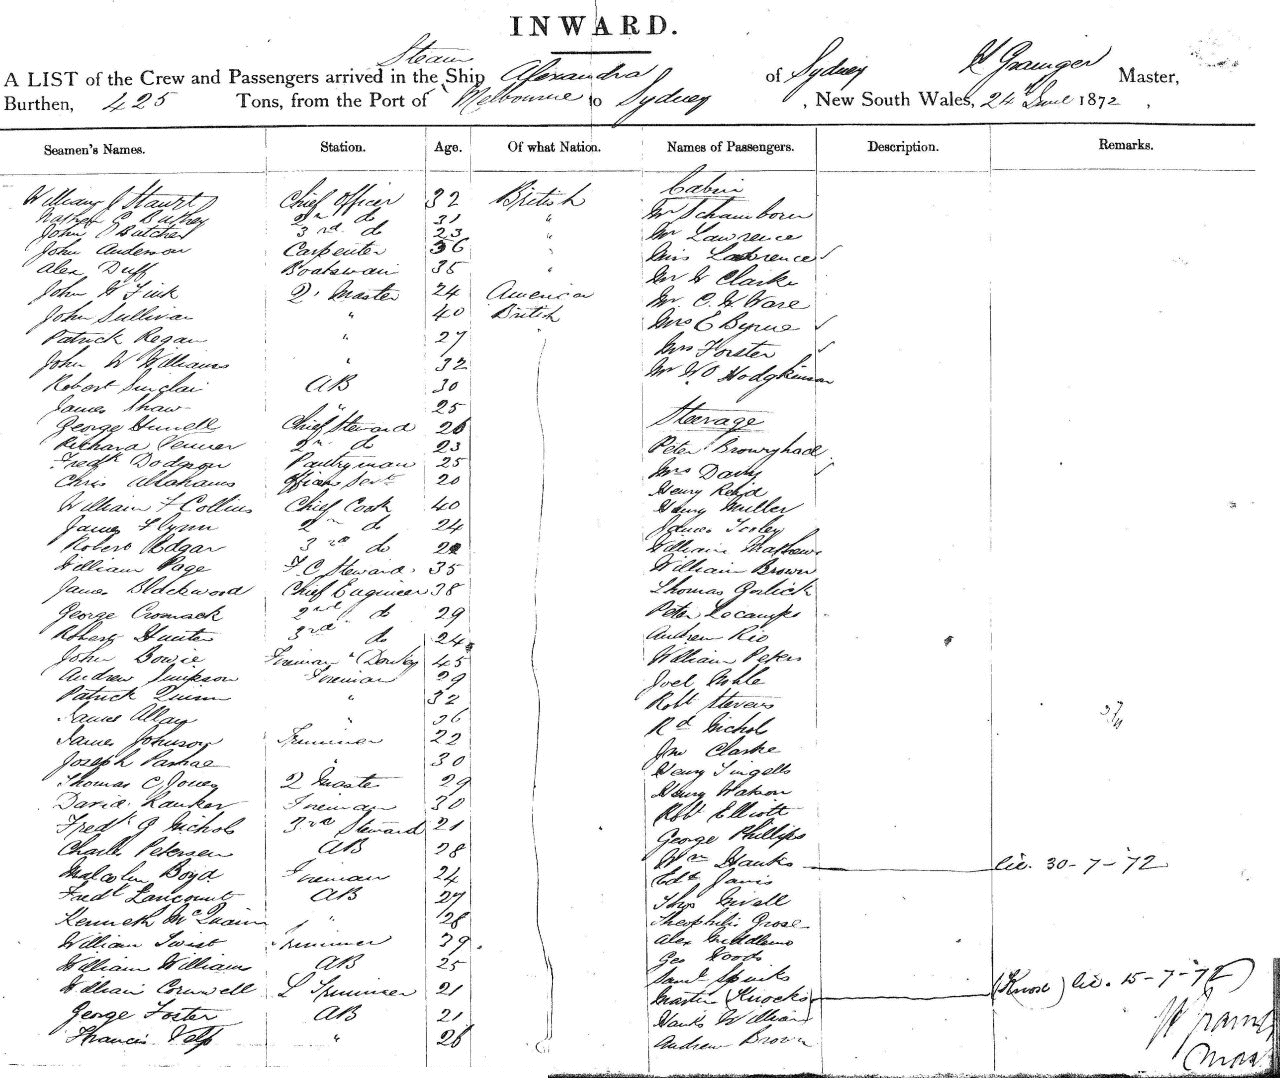 INWARD.
Steam
A LIST of the Crew and Passengers arrived in the Ship Alexandra of Sydney H Grainger Master,
Burthen, 425 Tons, from the Port of Melbourne to Sydney, New South Wales, 24th 1872,
Seamen's Names. Station. Age. Of what Nation. Names of Passengers. Description. Remarks.
Cabin
William J Chief Officer 32 British Mr
2nd do 31 "
John Butcher 3rd do 23 " Mr Lawrence
John Anderson Carpenter 36 " Miss Lawrence
Alex Duff Boatswain 35 " Mr W Clarke
John W Fink 2. Master 24 American Mr. C. W Ware
John Sullivan " 40 British Mrs E Byrne
Patrick Regan " 27 " Mrs Forster
John W Williams " 32 Mr W Hodgkinson
Robert Sinclair AB 30
James Shaw " 25 Steerage
George Chief Steward 26
Richard Venner 2nd do 23 Peter
Fredk Dodgson Pantryman 25 Mrs Davy
Chris Abrahams Servt 20 Henry Reid
William F Collins Chief Cook 40 Henry Muller
James Flynn 2nd do 24 James
Robert Edgar 3rd do 22 William Mathews
William Page F.C. Steward. 35 William Brown
James Blackwood Chief Engineer 38 Thomas Gorlick
George Cromack 2nd do 29 Peter Lecamps
Robert Hunter 3rd do 24 Andrew Rio
John Bowie Fireman & Donkey 45 William Peters
Andrew Simpson Fireman 29 Joel Noble
Patrick Quinn " 32 Robt Stevens
James Allan " 26 Rd Nichols
James Johnson Trimmer 22 Jno Clarke
Joseph " 30 Henry Tingells
Thomas C Jones 2 Master 29 Henry Watson
David Ranken Fireman 30 Robt Elliott
Fredk J Nichols 3rd Steward 21 George Phillips
Charles Petersen AB 28 Wm Hanks lic. 30-7-72
Malcolm Boyd Fireman 24 Edw Jarvis
Fredk Lancourt AB 27 Thos Nivell
Kenneth McQuain " 28 Theophilis Grose
William Twist Trimmer 39 Alex
William Williams AB 25 Geo Woods
William Cornwell L Trimmer 21 Saml Spinks
George Foster AB 21 Martin (Knocks) (Knose) lic. 15-7-72
Francis " 26 Hanks William
Andrew Brown